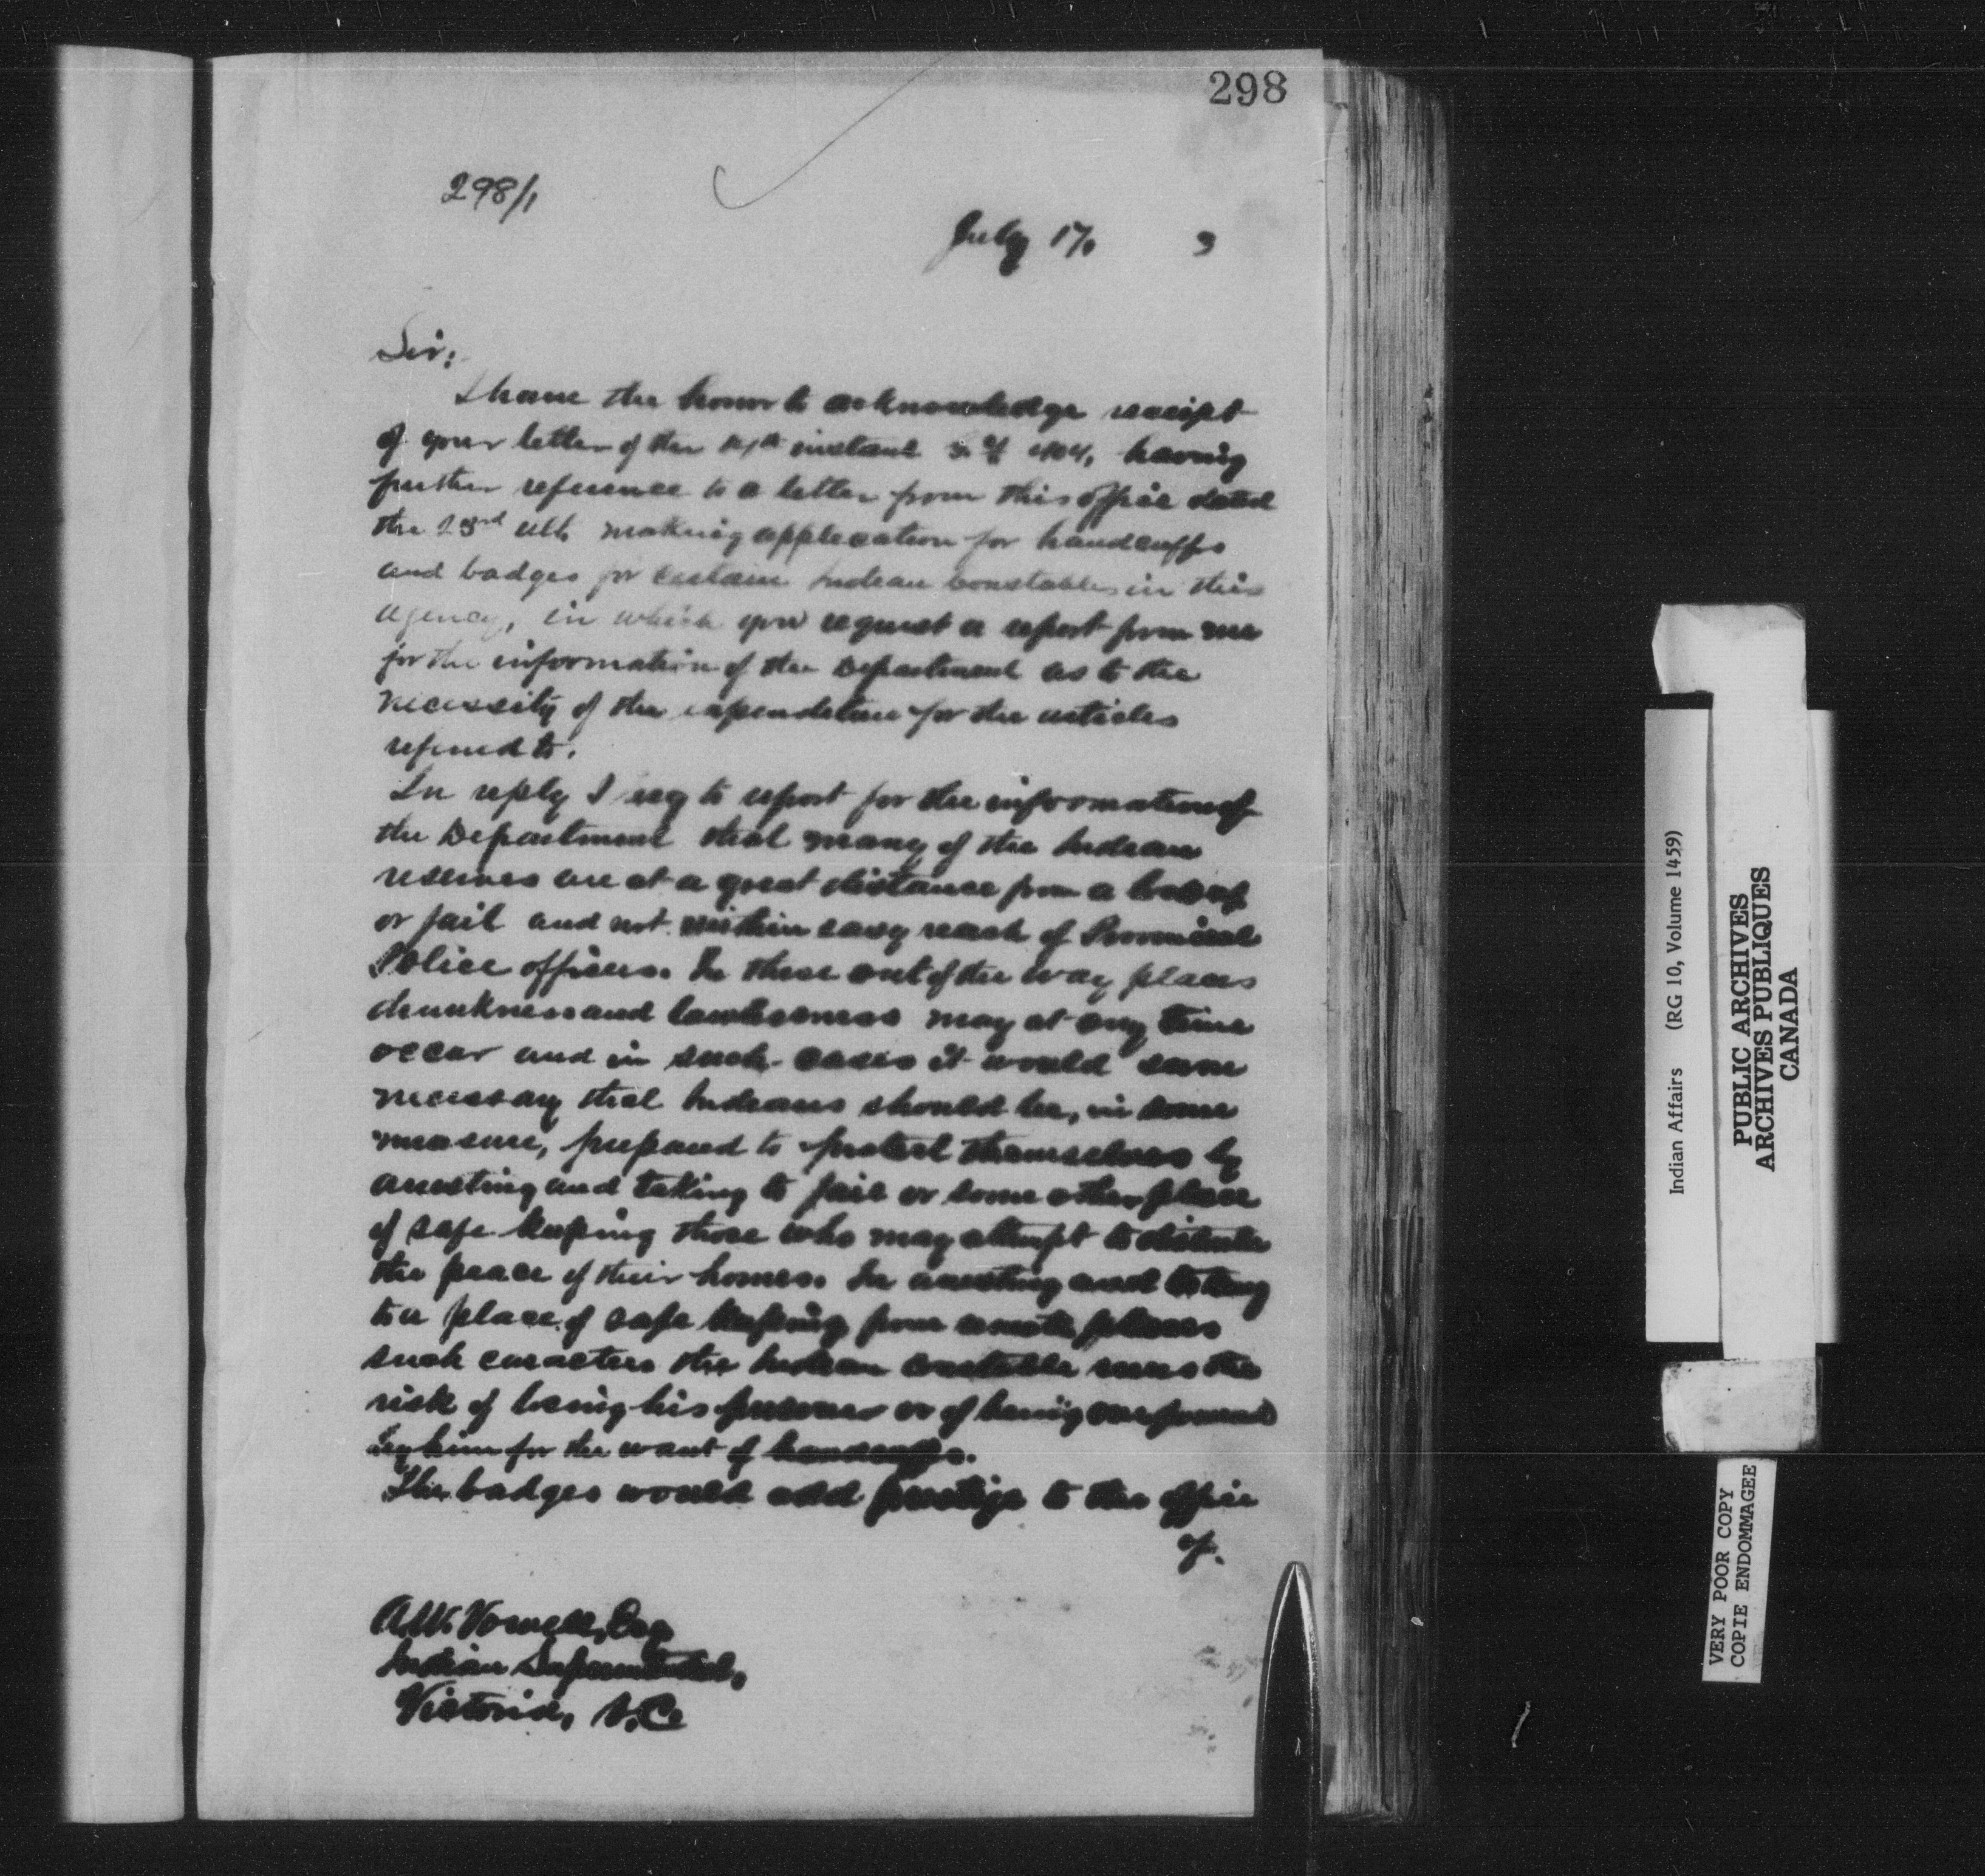 298
298/1
July 17, 3
Sir:
I have the honor to acknowledge receipt
of your letter of the instant having
further reference to a letter from this office dated
the 23rd ult. making application for handcuffs
and badges for certain Indian Constables in this
agency, in which you request a report from me
for the information of the Department as to the
necessity of the expenditure for the articles
referred to.
In reply I beg to report for the information of
the Department that many of the Indian
reserves are at a great distance from a lockup
or jail and not within easy reach of Provincial
Police officers. In these out of the way places
drunkness and lawlessness may at any time
occur and in such cases it would seem
necessary that Indians should be, in some
measure, prepared to protect themselves by
arresting and taking to jail or some other place
of safe keeping those who may attempt to disturb
the peace of their homes. In arresting and taking
to a place of safe keeping from remote places
such caracters the Indian constable runs the
risk of losing his prisoner or of being overpowered
by him for the want of handcuffs.
The badges would add prestige to the office
of.
A.W. Vowell, Esq
Indian Superintendent,
Victoria, B.C.
Indian Affairs (RG 10, Volume 1459)
PUBLIC ARCHIVES
ARCHIVES PUBLIQUES
CANADA
VERY POOR COPY
COPIE ENDOMMAGEE